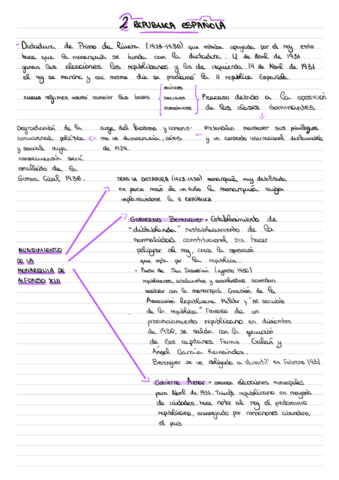 2 REPÚBLICA ESPAÑOLA
- Dictadura de Primo de Rivera (1923-1930) que estaba apoyada por el rey esto
hace que la monarquía se hunda con la dictadura. 12 de Abril de 1931
ganan las elecciones los republicanos y los de izquierda. 14 de Abril de 1931
el rey se marcha y ese mismo día se proclama la II república Española.
nuevo régimen intentó cambiar las bases
sociales
económicas
Fracaso debido a la oposición
de las clases dominantes
Degradación de la
convivencia política
y social
auge del fascismo y comunis-
mo
Pretendían mantener sus privilegios
y un contexto internacional desfavorable
de 1929.
Guerra Civil 1936.
TRAS LA DICTADURA (1923-1930) monarquía muy debilitada,
en poco más de un año la monarquía caiga
implantándose la II REPÚBLICA
HUNDIMIENTO
DE LA
MONARQUÍA DE
ALFONSO XIII
Gobierno Berenguer → Establecimiento de
"dictablanda" restablecimiento de la
normalidad constitucional sin hacer
peligrar al rey, crece la oposición
que opta por la república.
- Pacto de San Sebastián (agosto 1930)
republicanos, catalanistas y socialistas acuerdan
acabar con la monarquía. Creación de la
Asociación Republicana Militar y "Al servicio
de la república" Fracaso de un
pronunciamiento republicano en diciembre
de 1930, se salda con la ejecución
de los capitanes Fermín Galán y
Ángel García Hernández.
Berenguer se ve obligado a dimitir en Febrero 1931
Gobierno Aznar → convoca elecciones municipales
para Abril de 1931. Triunfo republicano en mayoría
de ciudades, hace notar al rey el predominio
republicano, aconsejado por Romanones abandona
el país